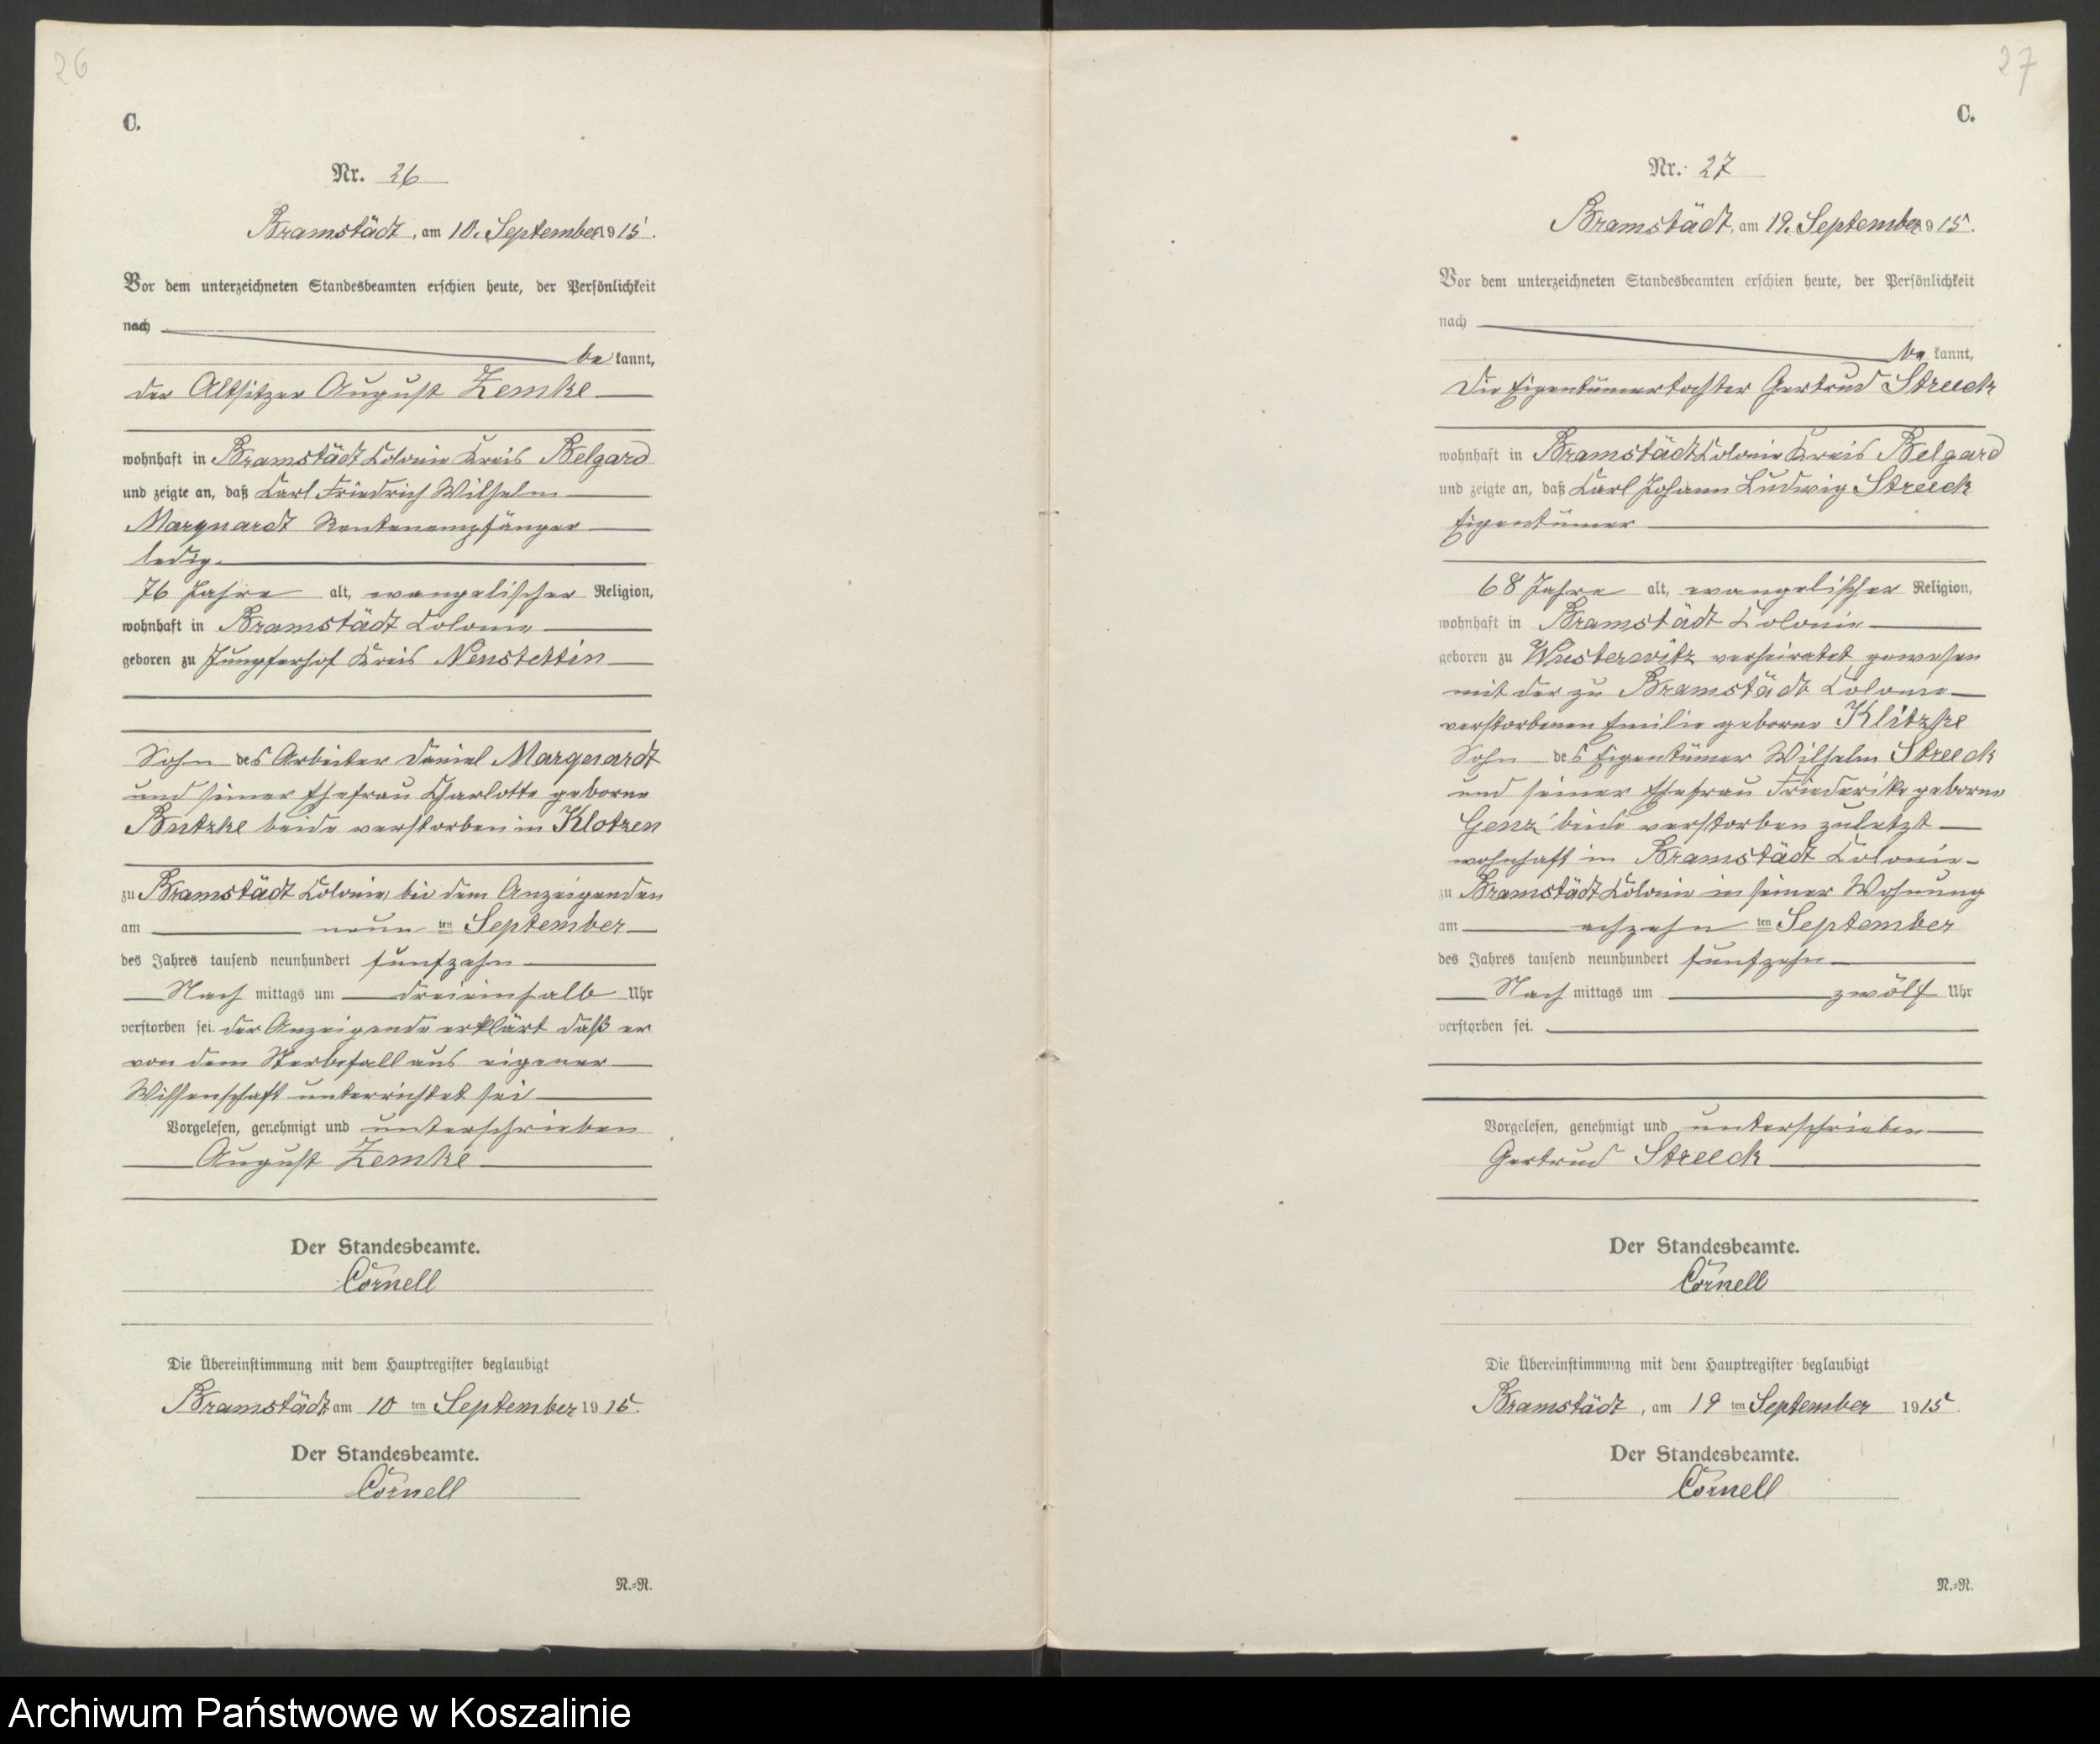 26
C.
Nr. 26
Bramstädt, am 10. September 1915.
Vor dem unterzeichneten Standesbeamten erschien heute, der Persönlichkeit
nach
be kannt,
der Altsitzer August Zemke
wohnhaft in Bramstädt Colonie Kreis Belgard
und zeigte an, daß Carl Friedrich Wilhelm
Marquardt Rentenempfänger
ledig.
76 Jahre alt, evangelischer Religion,
wohnhaft in Bramstädt Colonie
geboren zu Jungferhof Kreis Neustettin
Sohn des Arbeiter Daniel Marquardt
und seiner Ehefrau Charlotte geborne
Butzke beide verstorben in Klotzen
zu Bramstädt Colonie, bei dem Anzeigenden
am neun ten September
des Jahres tausend neunhundert fünfzehn
Nach mittags um dreieinhalb Uhr
verstorben sei. der Anzeigende erklärt daß er
von dem Sterbefall aus eigener
Wissenschaft unterrichtet sei
Vorgelesen, genehmigt und unterschrieben
August Zemke
Der Standesbeamte.
Cörnell
Die Übereinstimmung mit dem Hauptregister beglaubigt
Bramstädt, am 10 ten September 1915.
Der Standesbeamte.
Cörnell
N.=N.
27
C.
Nr. 27
Bramstädt, am 19. September 1915.
Vor dem unterzeichneten Standesbeamten erschien heute, der Persönlichkeit
nach
be kannt,
die Eigentümertochter Gertrud Streeck
wohnhaft in Bramstädt Colonie Kreis Belgard
und zeigte an, daß Carl Johann Ludwig Streeck
Eigentümer
68 Jahre alt, evangelischer Religion,
wohnhaft in Bramstädt Colonie
geboren zu Wusterwitz verheiratet gewesen
mit der zu Bramstädt Colonie
verstorbenen Emilie geborne Klitzke
Sohn des Eigentümer Wilhelm Streeck
und seiner Ehefrau Friederike geborne
Genz beide verstorben zuletzt
wohnhaft in Bramstädt Colonie
zu Bramstädt Colonie in seiner Wohnung
am achzehn ten September
des Jahres tausend neunhundert fünfzehn
Nach mittags um zwölf Uhr
verstorben sei.
Vorgelesen, genehmigt und unterschrieben
Gertrud Streeck
Der Standesbeamte.
Cörnell
Die Übereinstimmung mit dem Hauptregister beglaubigt
Bramstädt, am 19 ten September 1915.
Der Standesbeamte.
Cörnell
N.=N.
Archiwum Państwowe w Koszalinie